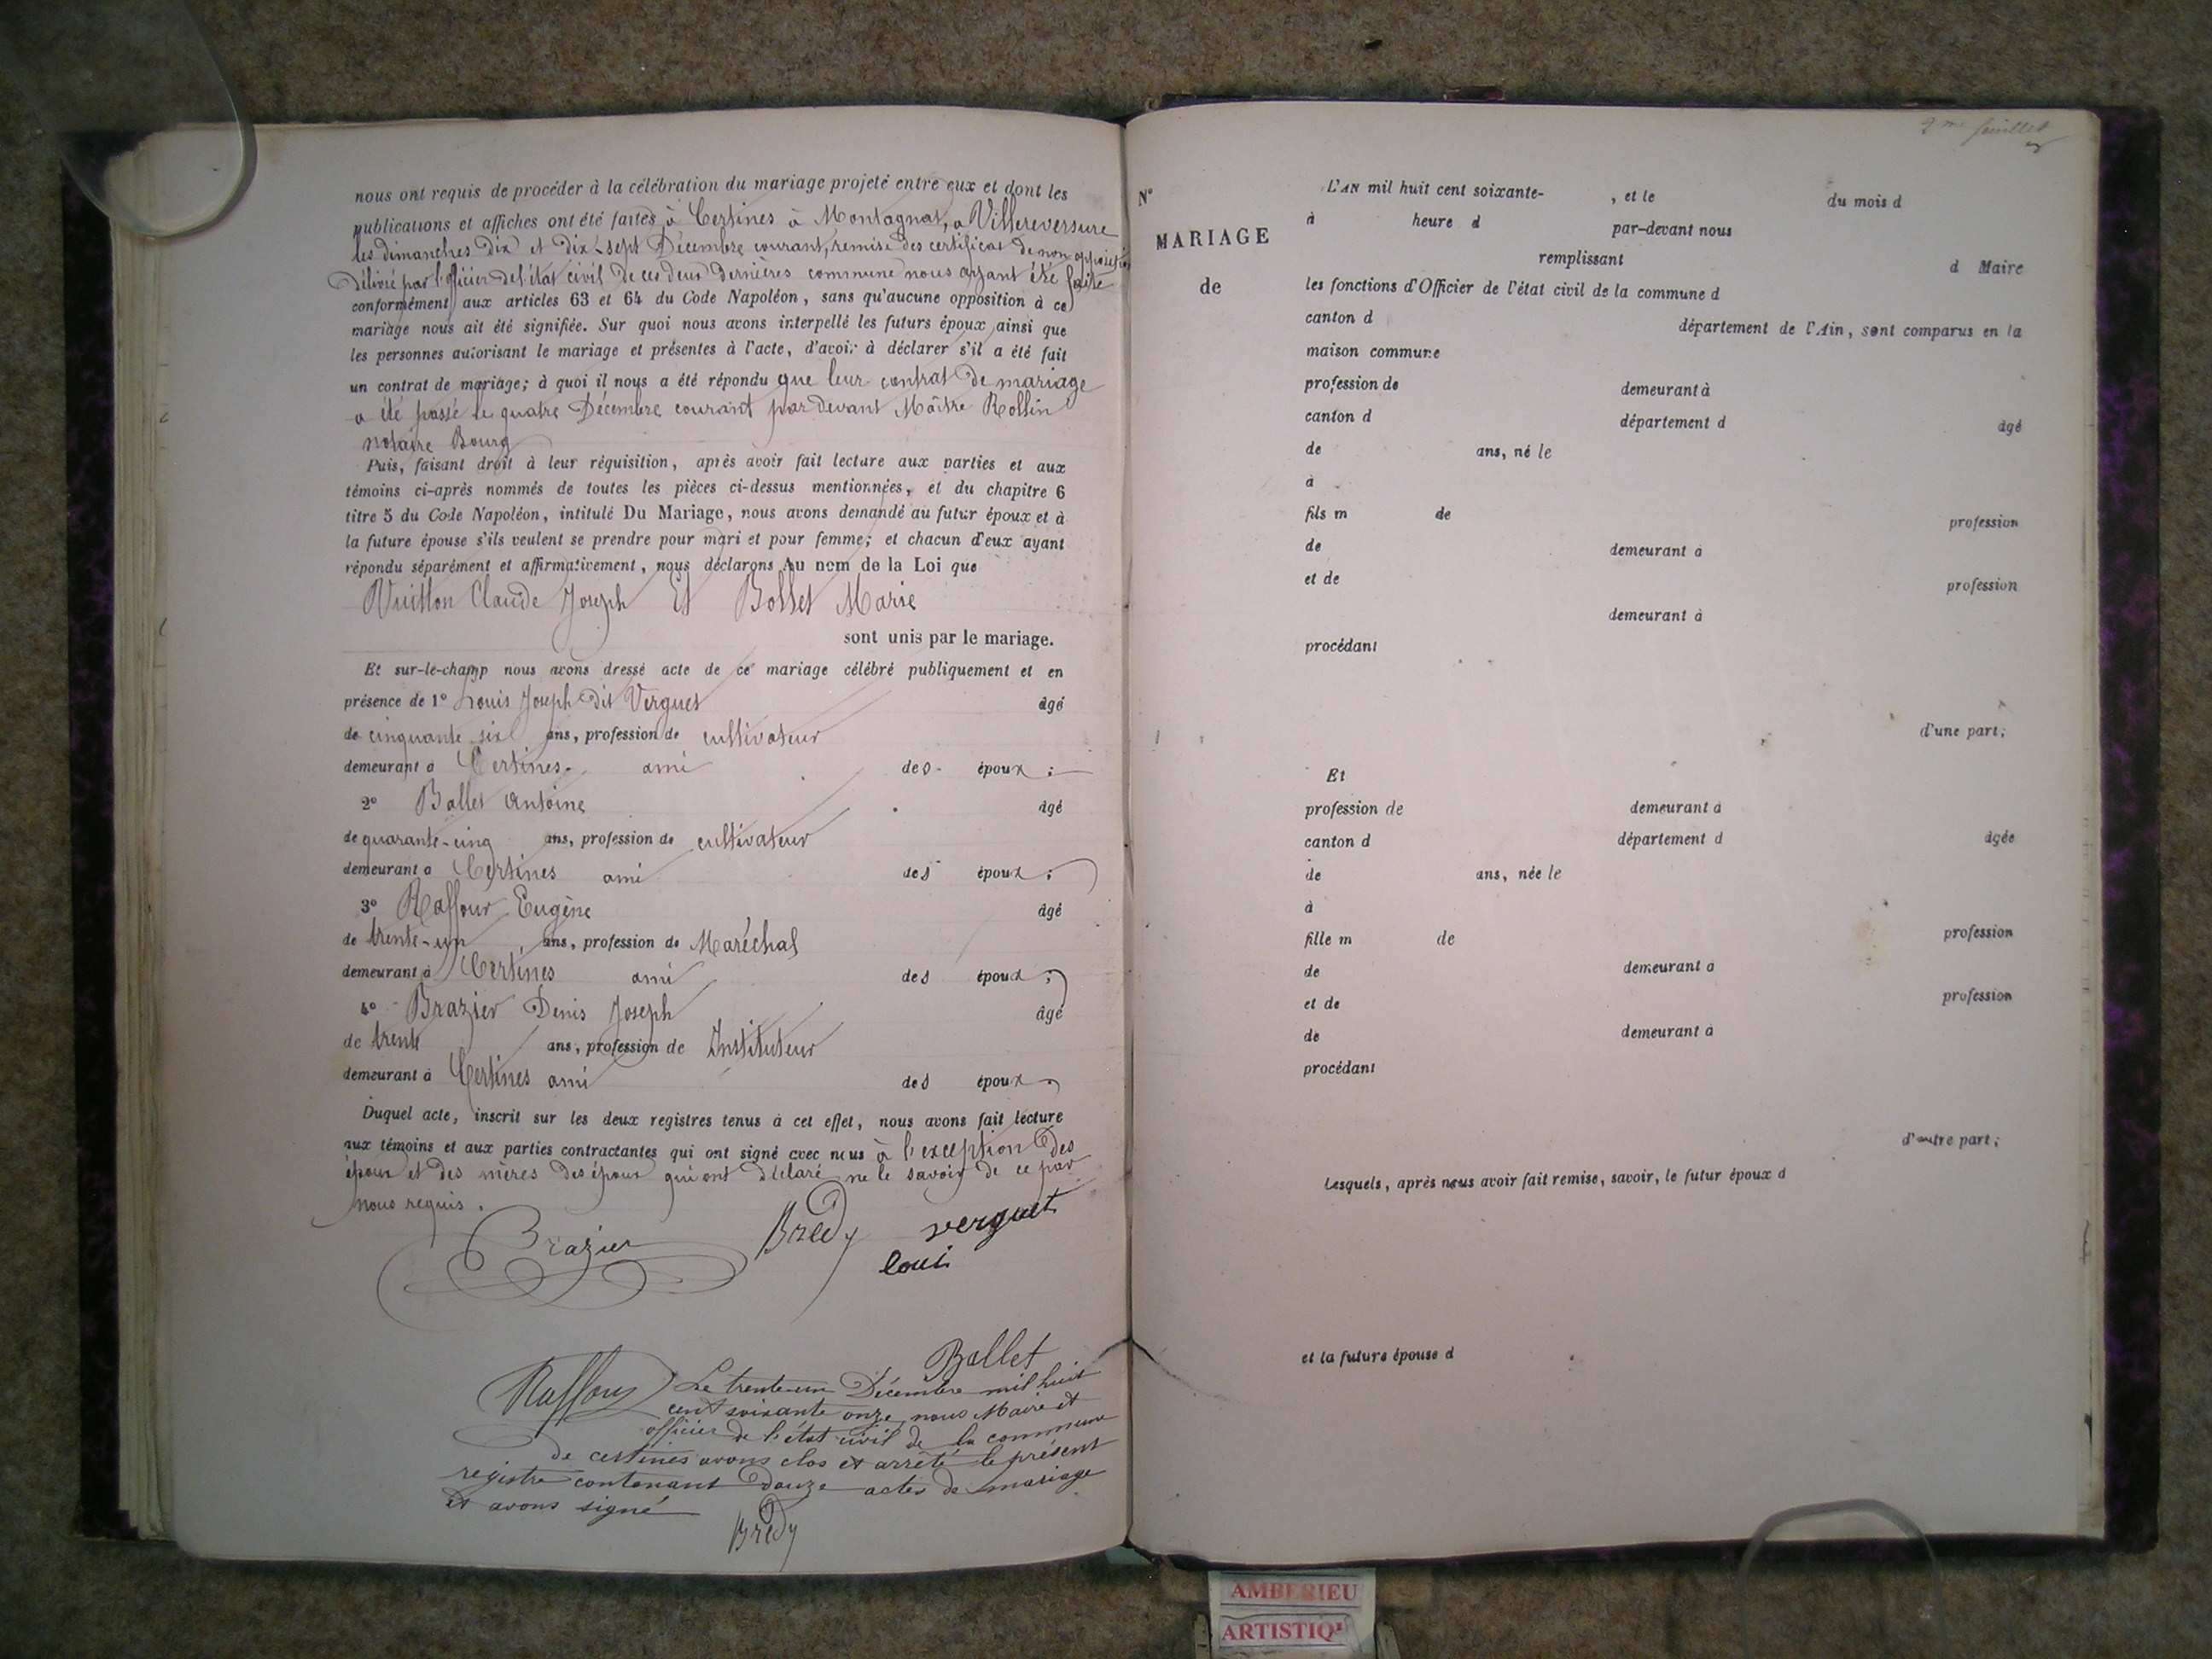 nous ont requis de procéder à la célébration du mariage projeté entre eux et dont les
publications et affiches ont été faites à Certines à Montagnat, a Villereversure
les dimanches dix et dix-sept Décembre courant, remise des certificat de non opposition
Délivré par l'officier de l'état civil de ces deux dernières commune nous ayant été faite
conformément aux articles 63 et 64 du Code Napoléon, sans qu'aucune opposition à ce
mariage nous ait été signifiée. Sur quoi nous avons interpellé les futurs époux ainsi que
les personnes autorisant le mariage et présentes à l'acte, d'avoir à déclarer s'il a été fait
un contrat de mariage; à quoi il nous a été répondu que leur contrat de mariage
a été passé le quatre Décembre courant par devant Maître Rollin
notaire Bourg
Puis, faisant droit à leur réquisition, après avoir fait lecture aux parties et aux
témoins ci-après nommés de toutes les pièces ci-dessus mentionnées, et du chapitre 6
titre 5 du Code Napoléon, intitulé Du Mariage, nous avons demandé au futur époux et à
la future épouse s'ils veulent se prendre pour mari et pour femme; et chacun d'eux ayant
répondu séparément et affirmativement, nous déclarons Au nom de la Loi que
Vuillon Claude Joseph Et Bollet Marie
sont unis par le mariage.
Et sur-le-champ nous avons dressé acte de ce mariage célébré publiquement et en
présence de 1° Louis Joseph dit Verguet âgé
de cinquante six ans, profession de cultivateur
demeurant à Certines ami des époux ;
2° Ballet Antoine âgé
de quarante-cinq ans, profession de cultivateur
demeurant à Certines ami des époux ;
3° Raffour Eugène âgé
de trente-un ans, profession de Maréchal
demeurant à Certines ami des époux ;
4° Brazier Denis Joseph âgé
de trente ans, profession de Instituteur
demeurant à Certines ami des époux
Duquel acte, inscrit sur les deux registres tenus à cet effet, nous avons fait lecture
aux témoins et aux parties contractantes qui ont signé avec nous à l'exception des
époux et des mères des époux qui ont déclaré ne le savoir de ce par
nous requis.
Brazier Bredy verguet
loui
Ballet
Raffour Le trente-un Décembre mil huit
cent soixante onze, nous Maire et
officier de l'état civil de la commune
de certines avons clos et arrêté le présent
registre contenant douze actes de mariage
et avons signé
Bredy
2me feuillet
N° L'AN mil huit cent soixante- , et le du mois d
à heure d par-devant nous
MARIAGE
remplissant d Maire
de les fonctions d'Officier de l'état civil de la commune d
canton d département de l'Ain, sont comparus en la
maison commune
profession de demeurant à
canton d département d âgé
de ans, né le
à
fils m de profession
de demeurant à
et de profession
demeurant à
procédant
d'une part;
Et
profession de demeurant à
canton d département d âgée
de ans, née le
à
fille m de profession
de demeurant à
et de profession
de demeurant à
procédant
d'autre part;
Lesquels, après nous avoir fait remise, savoir, le futur époux d
et la future épouse d
AMBERIEU
ARTISTIQ